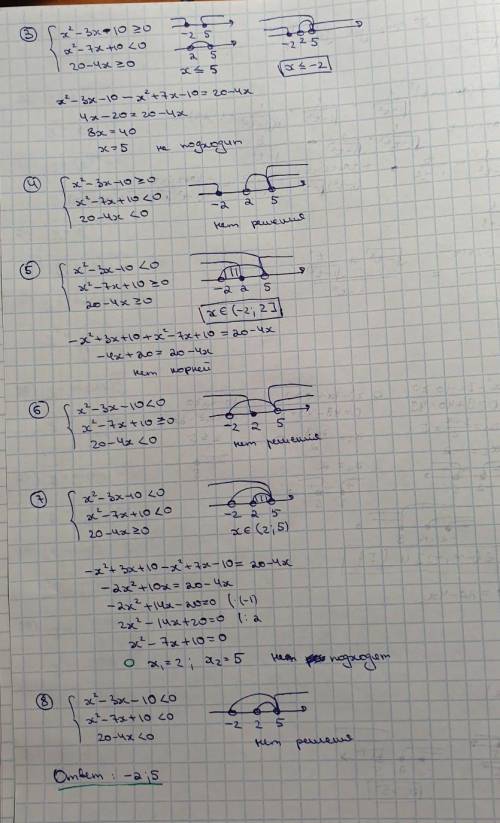 ③ { x² - 3x - 10 ≥ 0
x² - 7x + 10 < 0
20 - 4x ≥ 0
-2 5
2 5
x ≤ 5
-2 2 5
x ≤ -2
x² - 3x - 10 - x² + 7x - 10 = 20 - 4x
4x - 20 = 20 - 4x
8x = 40
x = 5 не подходит
④ { x² - 3x - 10 ≥ 0
x² - 7x + 10 < 0
20 - 4x < 0
-2 2 5
нет решения
⑤ { x² - 3x - 10 < 0
x² - 7x + 10 ≥ 0
20 - 4x ≥ 0
-2 2 5
x ∈ (-2; 2]
-x² + 3x + 10 + x² - 7x + 10 = 20 - 4x
-4x + 20 = 20 - 4x
нет корней
⑥ { x² - 3x - 10 < 0
x² - 7x + 10 ≥ 0
20 - 4x < 0
-2 2 5
нет решения
⑦ { x² - 3x - 10 < 0
x² - 7x + 10 < 0
20 - 4x ≥ 0
-2 2 5
x ∈ (2; 5)
-x² + 3x + 10 - x² + 7x - 10 = 20 - 4x
-2x² + 10x = 20 - 4x
-2x² + 14x - 20 = 0 |·(-1)
2x² - 14x + 20 = 0 |: 2
x² - 7x + 10 = 0
x₁ = 2; x₂ = 5 подходят
⑧ { x² - 3x - 10 < 0
x² - 7x + 10 < 0
20 - 4x < 0
-2 2 5
нет решения
Ответ: -2; 5